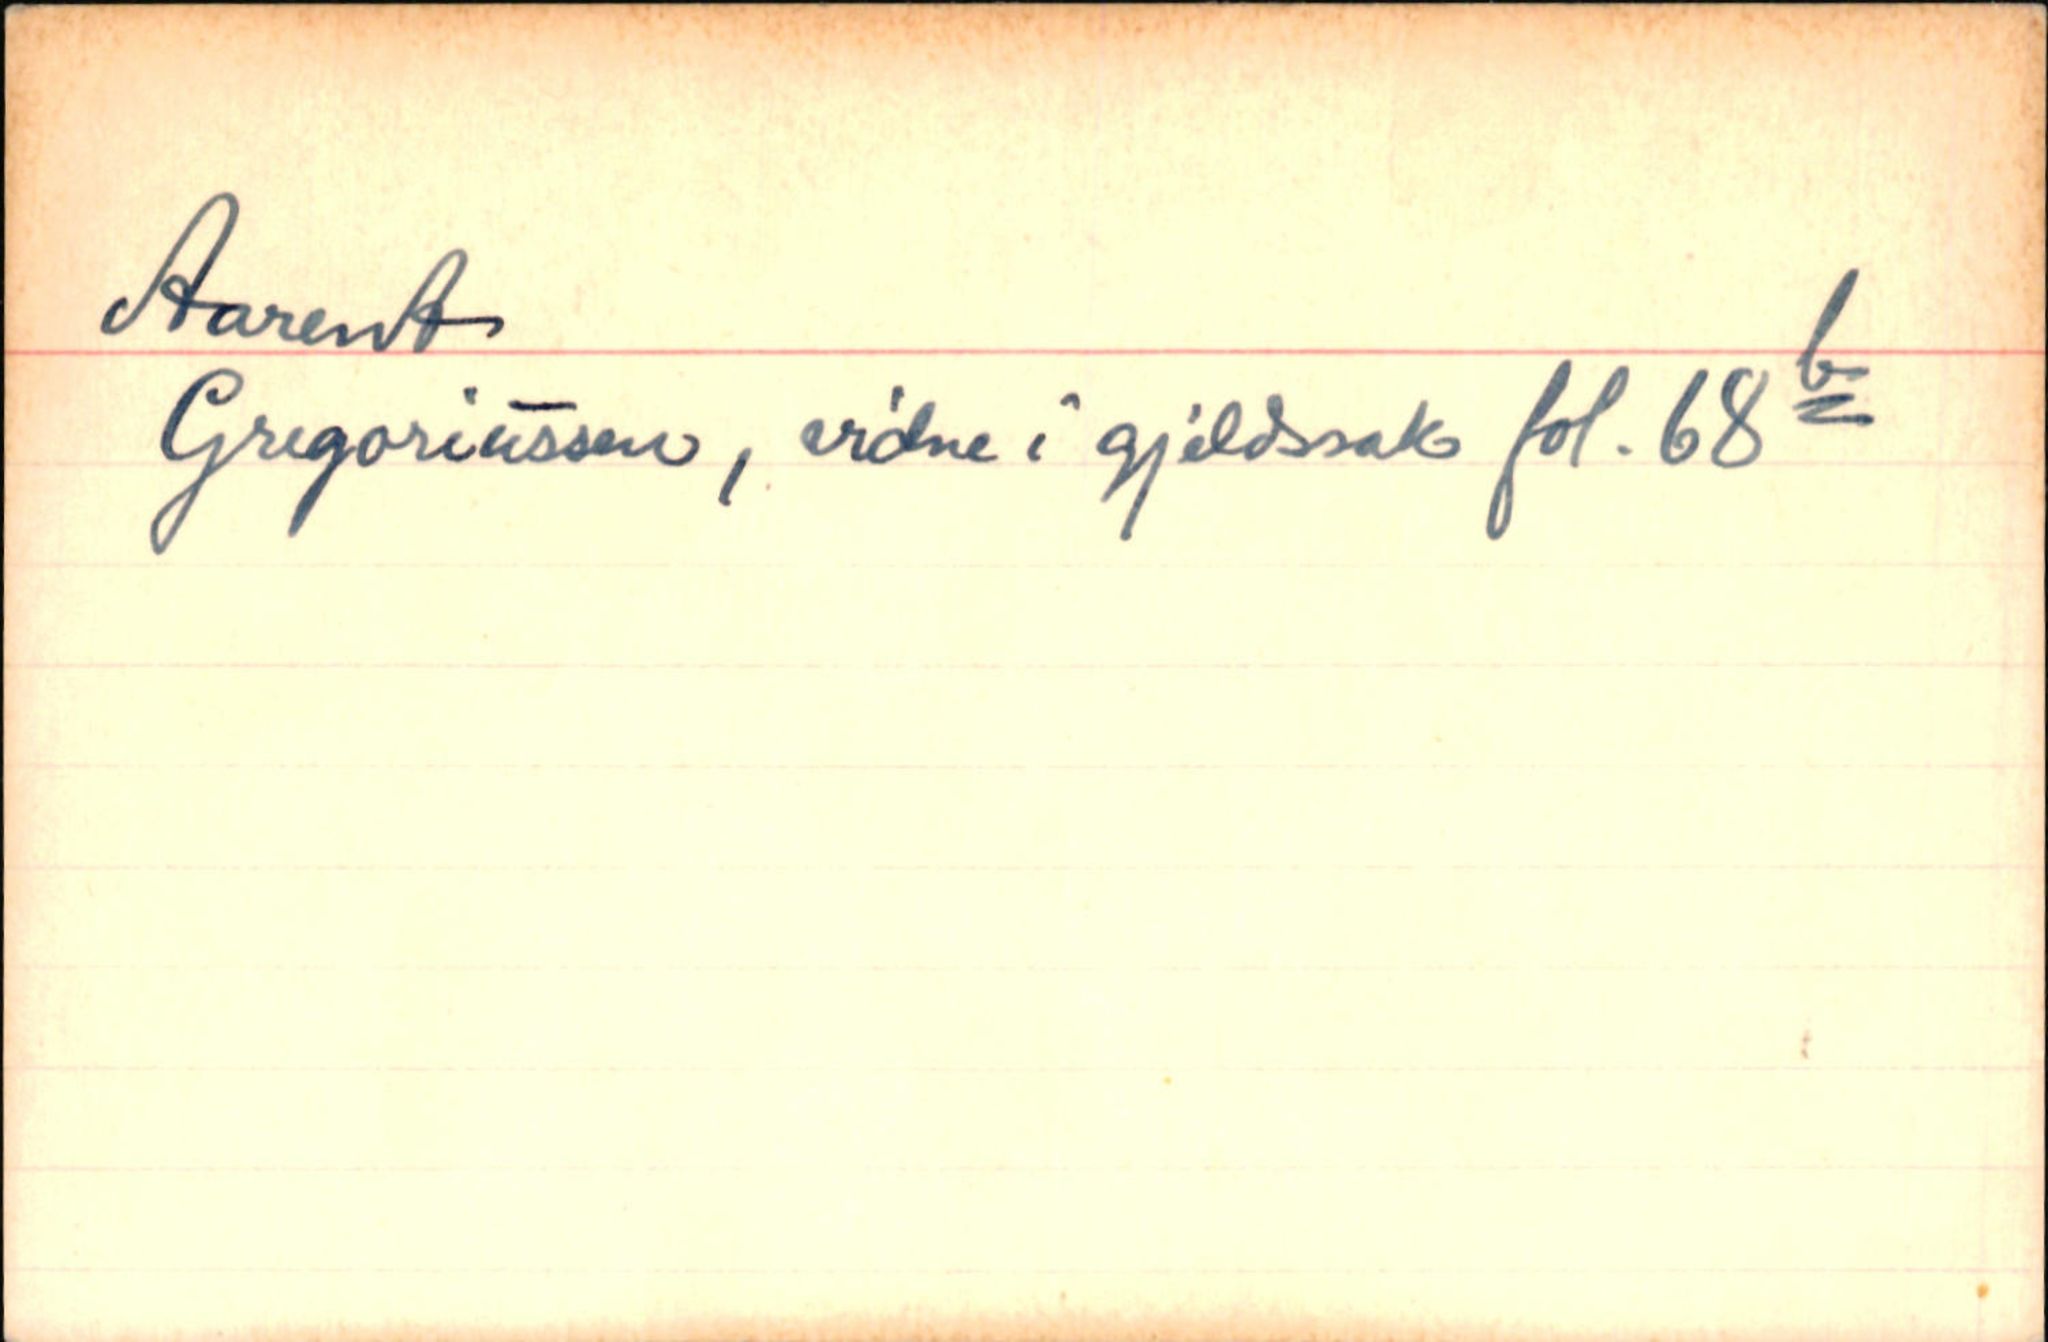 Aarent
Gregoriussen, vidne i gjeldssak fol. 68 b